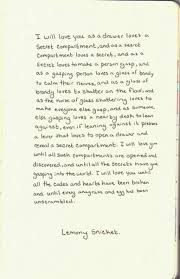 I will love you as a drawer loves a
secret compartment, and as a secret
compartment loves a secret, and as a
secret loves to make a person gasp, and
as a gasping person loves a glass of brandy
to calm their nerves, and as a glass of
brandy loves to shatter on the floor, and
as the noise of glass shattering loves to
make someone else gasp, and as someone
else gasping loves a nearby desk to lean
against, even if leaning against it presses
a lever that loves to open a drawer and
reveal a secret compartment. I will love you
until all such compartments are opened and
discovered, and until all the secrets have gone
gasping into the world. I will love you until
all the codes and hearts have been broken
and until every anagram and egg has been
unscrambled.
Lemony Snicket.